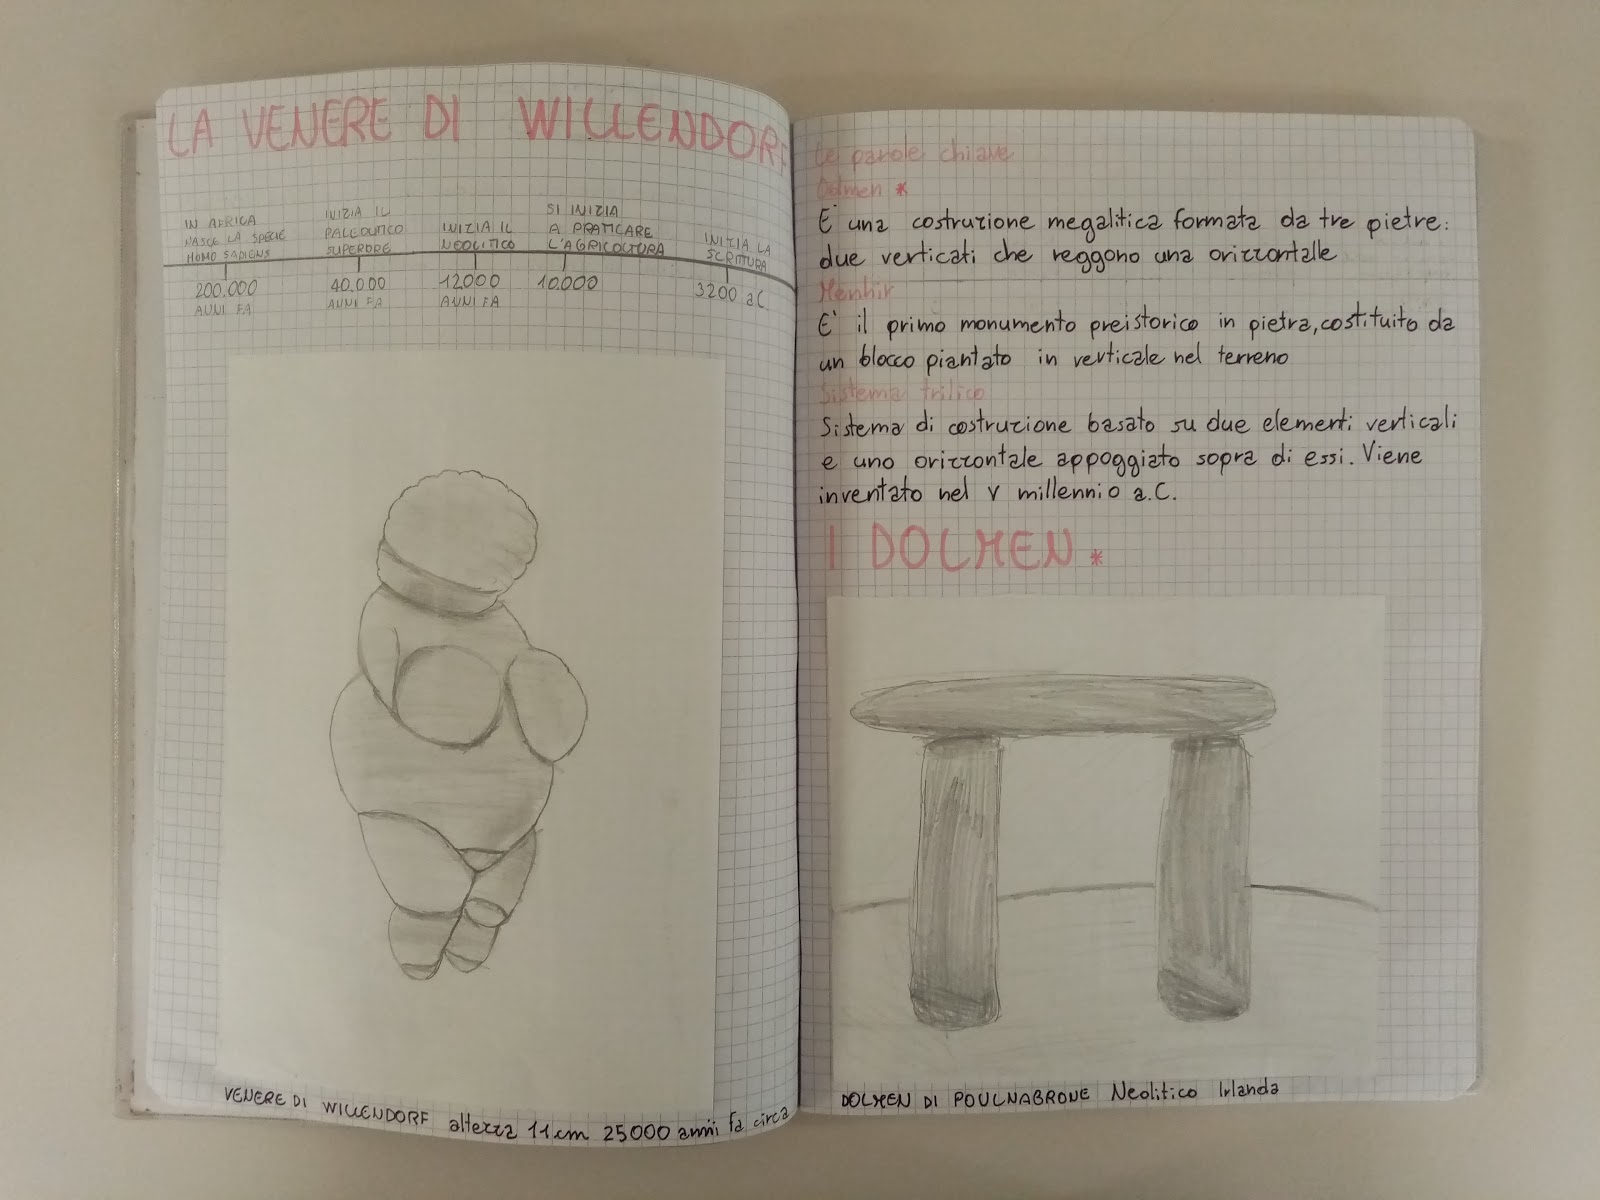 LA VENERE DI WILLENDORF
IN AFRICA
NASCE LA SPECIE
HOMO SAPIENS
200.000
ANNI FA
INIZIA IL
PALEOLITICO
SUPERIORE
40.000
ANNI FA
INIZIA IL
NEOLITICO
12000
ANNI FA
SI INIZIA
A PRATICARE
L'AGRICOLTURA
10.000
INIZIA LA
SCRITTURA
3200 a.C
VENERE DI WILLENDORF altezza 11 cm 25000 anni fa circa
Le parole chiave
Dolmen *
E' una costruzione megalitica formata da tre pietre:
due verticati che reggono una orizzontalle
Menhir
E' il primo monumento preistorico in pietra, costituito da
un blocco piantato in verticale nel terreno
Sistema trilico
Sistema di costruzione basato su due elementi verticali
e uno orizzontale appoggiato sopra di essi. Viene
inventato nel V millennio a.C.
I DOLMEN *
DOLMEN DI POULNABRONE Neolitico Irlanda